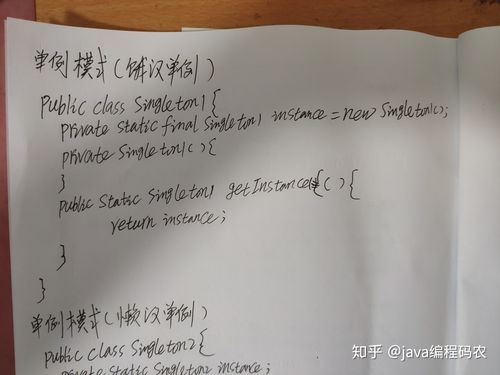 单例模式(饿汉单例)
public class Singleton1 {
private static final Singleton1 instance = new Singleton1();
private Singleton1() {
}
public static Singleton1 getInstance() {
return instance;
}
}
单例模式(懒汉单例)
public class Singleton2 {
private static Singleton2 instance;
知乎 @java编程码农